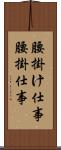 腰掛け仕事
腰掛仕事